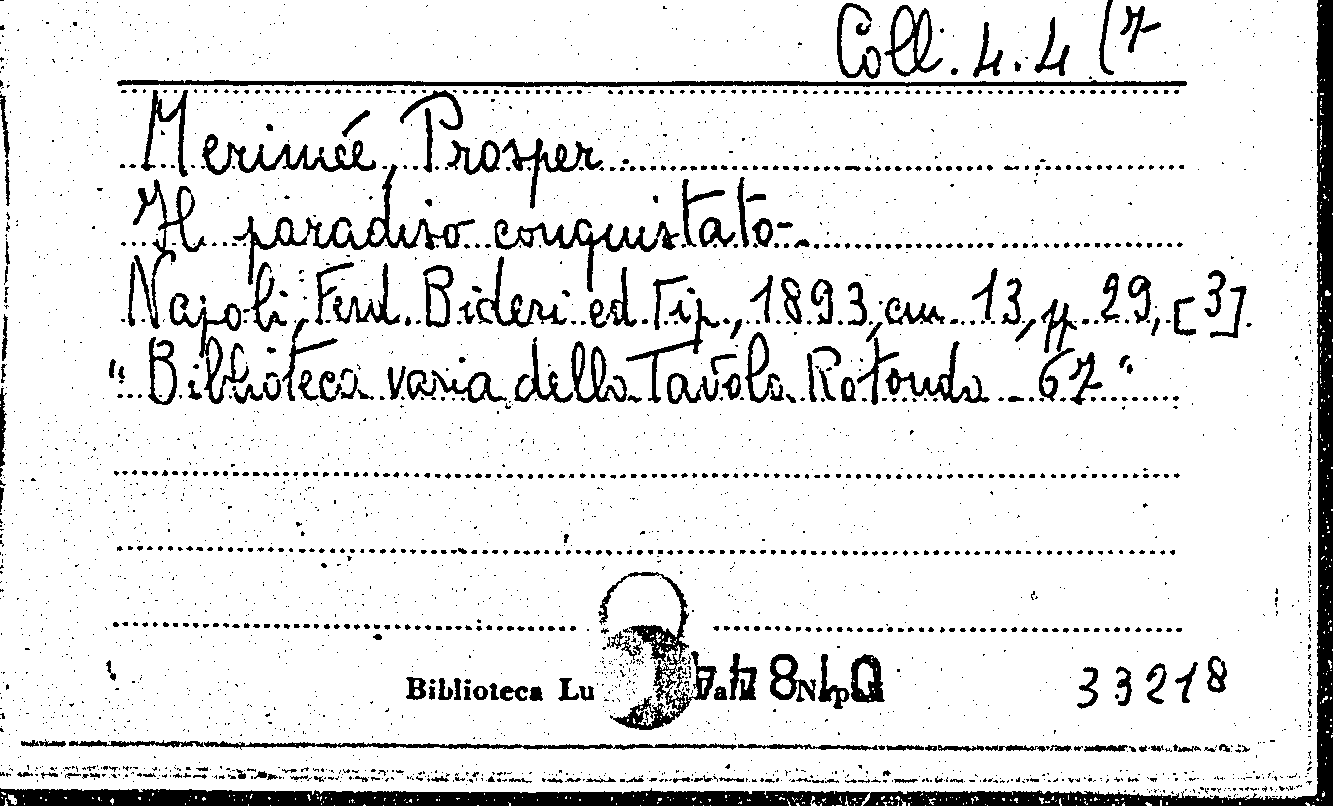 Coll. 4.4 (7
Merimée, Prosper.
Il paradiso conquistato.
Napoli, Ferd. Bideri ed. Tip., 1893, cm. 13, pp. 29, [3].
"Biblioteca varia della Tavola Rotonda - 67"
Biblioteca Lu
33218